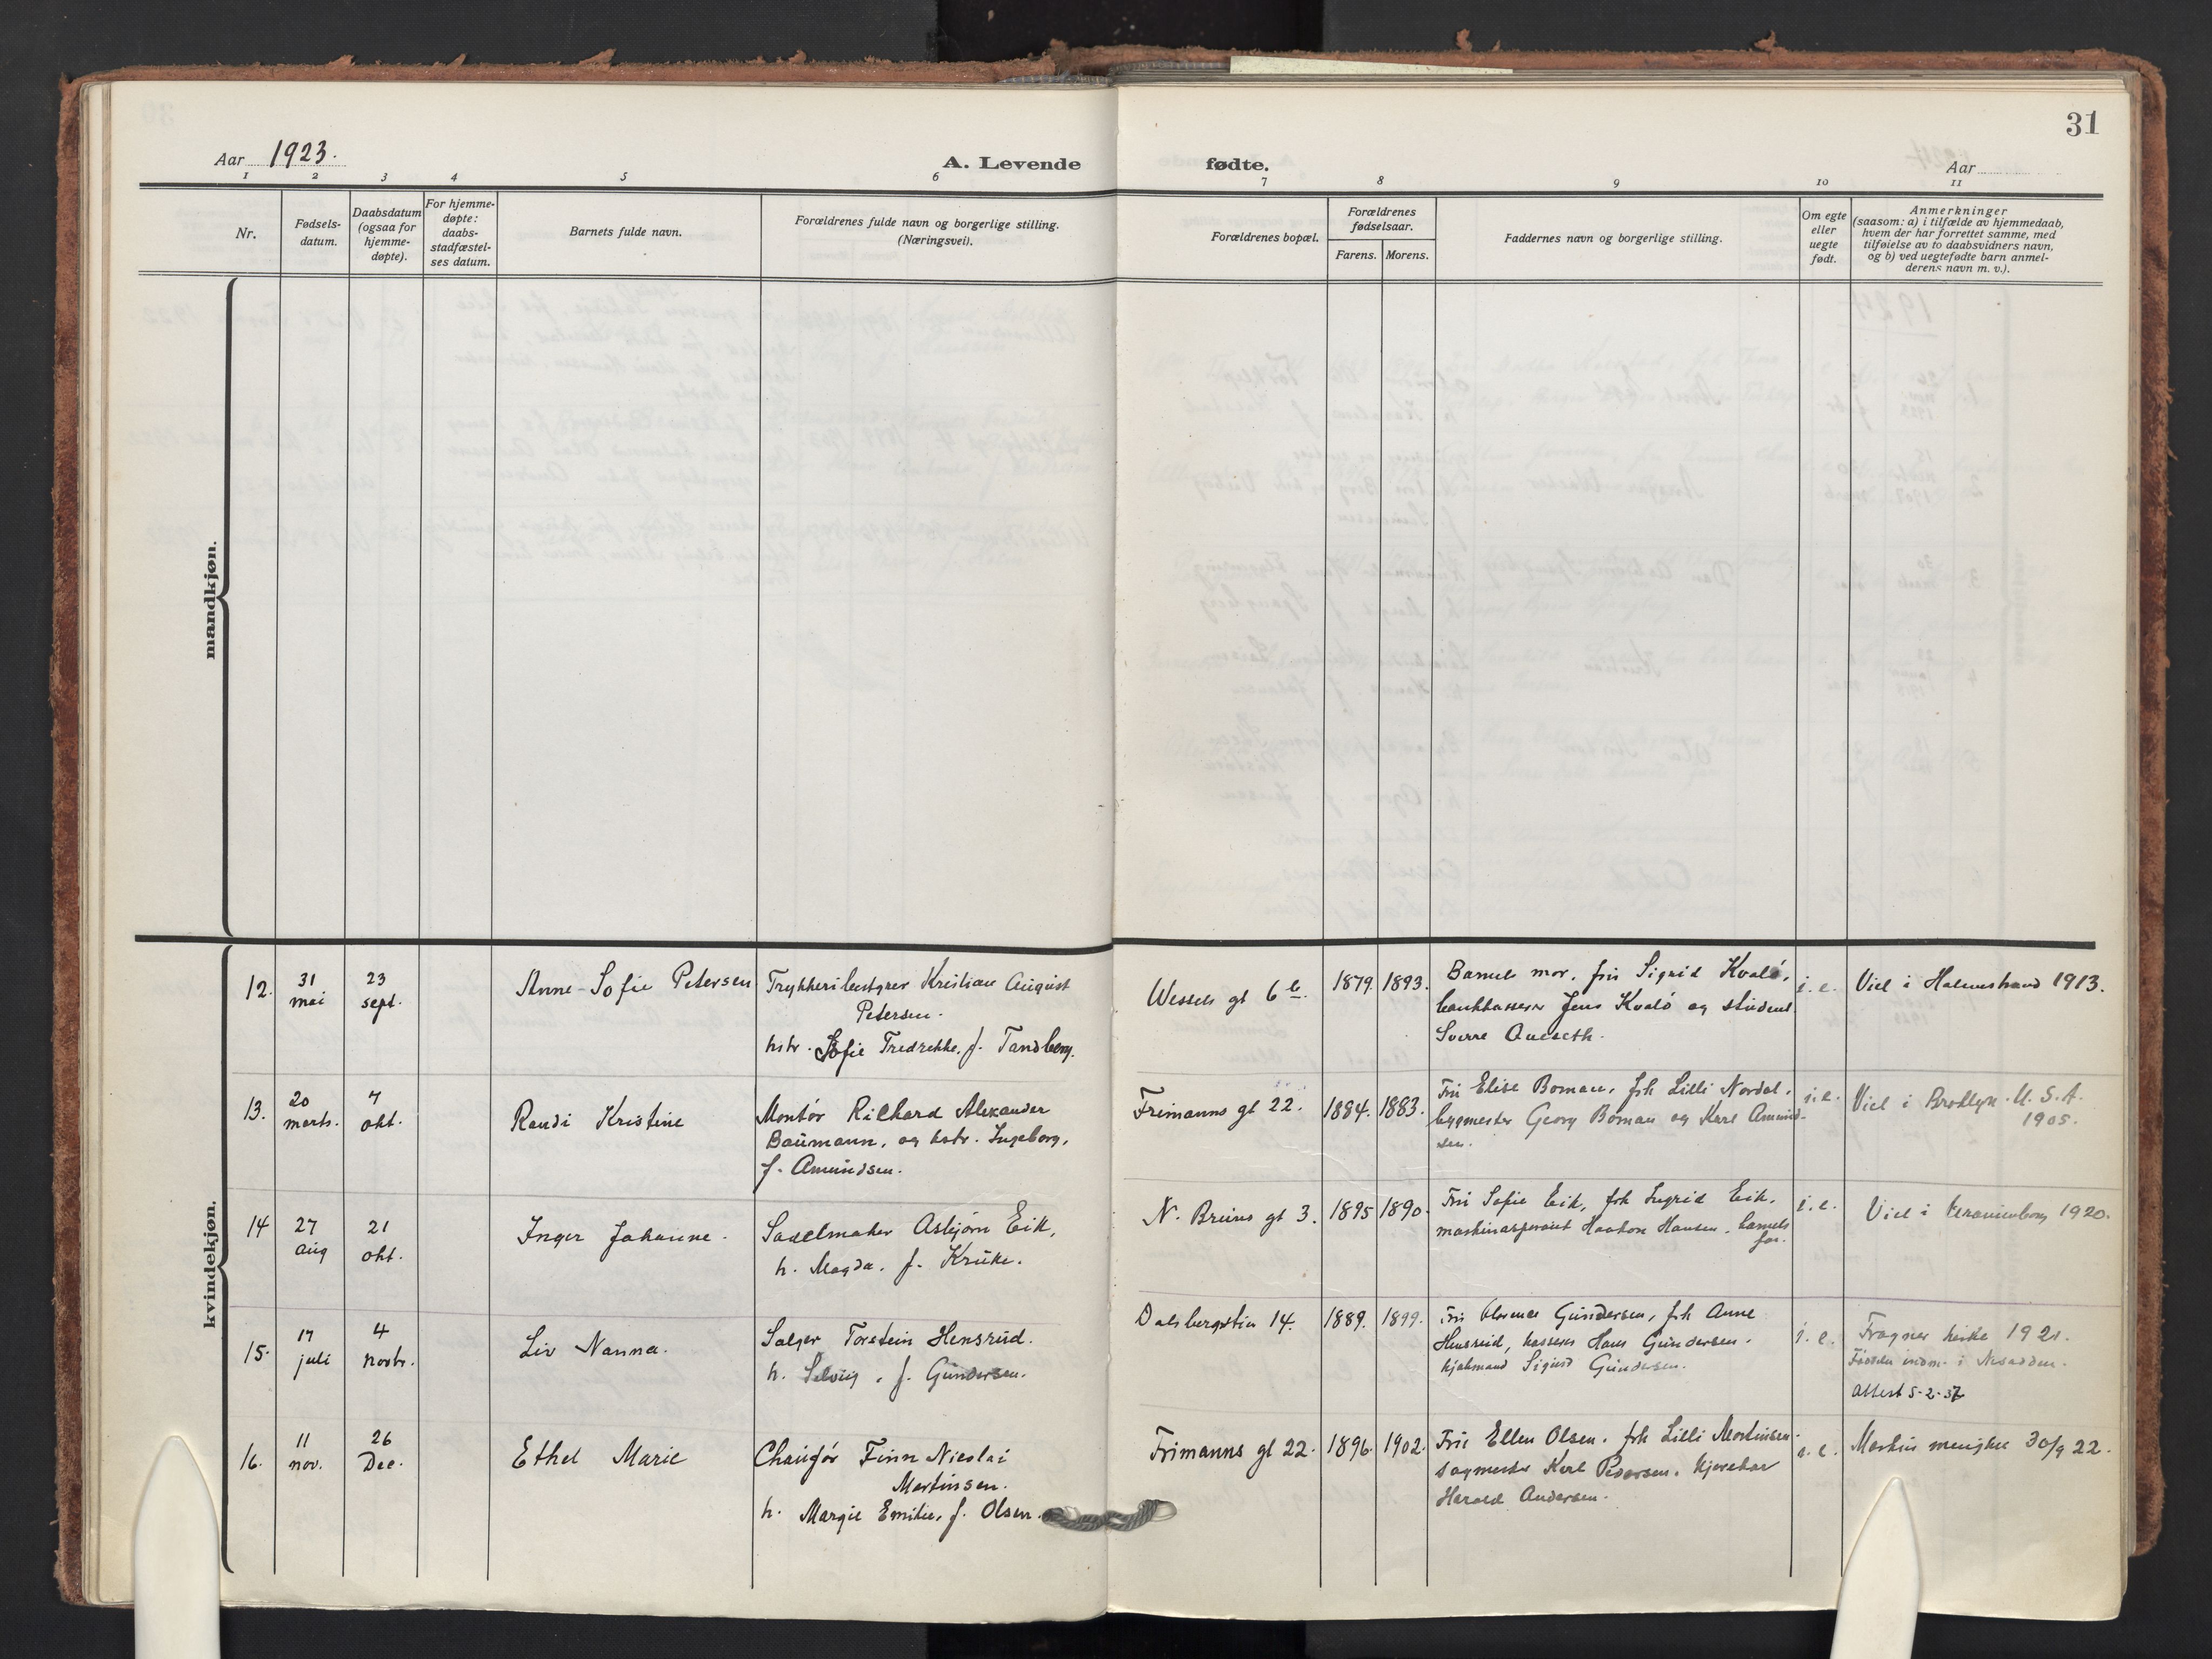 31
Aar 1923.
A. Levende
fødte.
Aar
1 2 3 4 5 6 7 8 9 10 11
Nr.
Fødsels-
datum.
Daabsdatum
(ogsaa for
hjemme-
døpte).
For hjemme-
døpte:
daabs-
stadfæstel-
ses datum.
Barnets fulde navn.
Forældrenes fulde navn og borgerlige stilling.
(Næringsvei).
Forældrenes bopæl.
Forældrenes
fødselsaar.
Farens. Morens.
Faddernes navn og borgerlige stilling.
Om egte
eller
uegte
født.
Anmerkninger
(saasom: a) i tilfælde av hjemmedaab,
hvem der har forrettet samme, med
tilføielse av to daabsvidners navn,
og b) ved uegtefødte barn anmel-
derens navn m. v.).
mandkjøn.
kvindekjøn.
12.
31
mai
23
sept.
Anne-Sofie Petersen
Trykkeribestyrer Kristian August
Petersen.
hstr. Sofie Fredrekke, f. Tandberg.
Wessels gt 6 b.
1879. 1893.
Barnets mor, fru Sigrid Kvalø,
bankkasserer Jens Kvalø og student
Sverre
i. e.
Viel i Holmestrand 1913.
13.
20
marts.
7
okt.
Randi Kristine
Montör Richard Alexander
Baumann, og hstr. Ingeborg,
f. Amundsen.
Frimanns gt 22.
1884. 1883.
Fru Elise Boman, frk Lilli Nordal,
bygmester Georg Boman og Karl Amund-
sen.
i. e.
Viel i Broklyn. U. S. A.
1905.
14
27
aug
21
okt.
Inger Johanne.
Sadelmaker Asbjørn Eik,
h. Magda. f. Kruke.
N. Bruns gt 3.
1895 1890.
Fru Sofie Eik, frk Ingrid Eik,
maskinaspirant Haakon Hansen, barnets
far.
i. e.
Viel i Uranienborg 1920.
15.
17
juli
4
novbr.
Liv Nanna.
Sælger Torstein Hensrud.
h. Solveig, f. Gundersen.
Dalsbergstien 14.
1889. 1899.
Fru Gundersen, frk Anne
Hensrud, kasserer Hans Gundersen,
Sigurd Gundersen.
i. e.
Frogner kirke 1921.
i Nesodden.
Attest 5-2-37
16.
11
nov.
26
Dec.
Ethel Marie
Chaufør Finn Nicolai
Martinsen.
h. Margie Emilie, f. Olsen.
Frimanns gt 22.
1896. 1902.
Fru Ellen Olsen, frk Lilli Martinsen.
Karl Pedersen, kjørekar
Harald Andersen.
i. e.
Markus menighet 30/9 22.